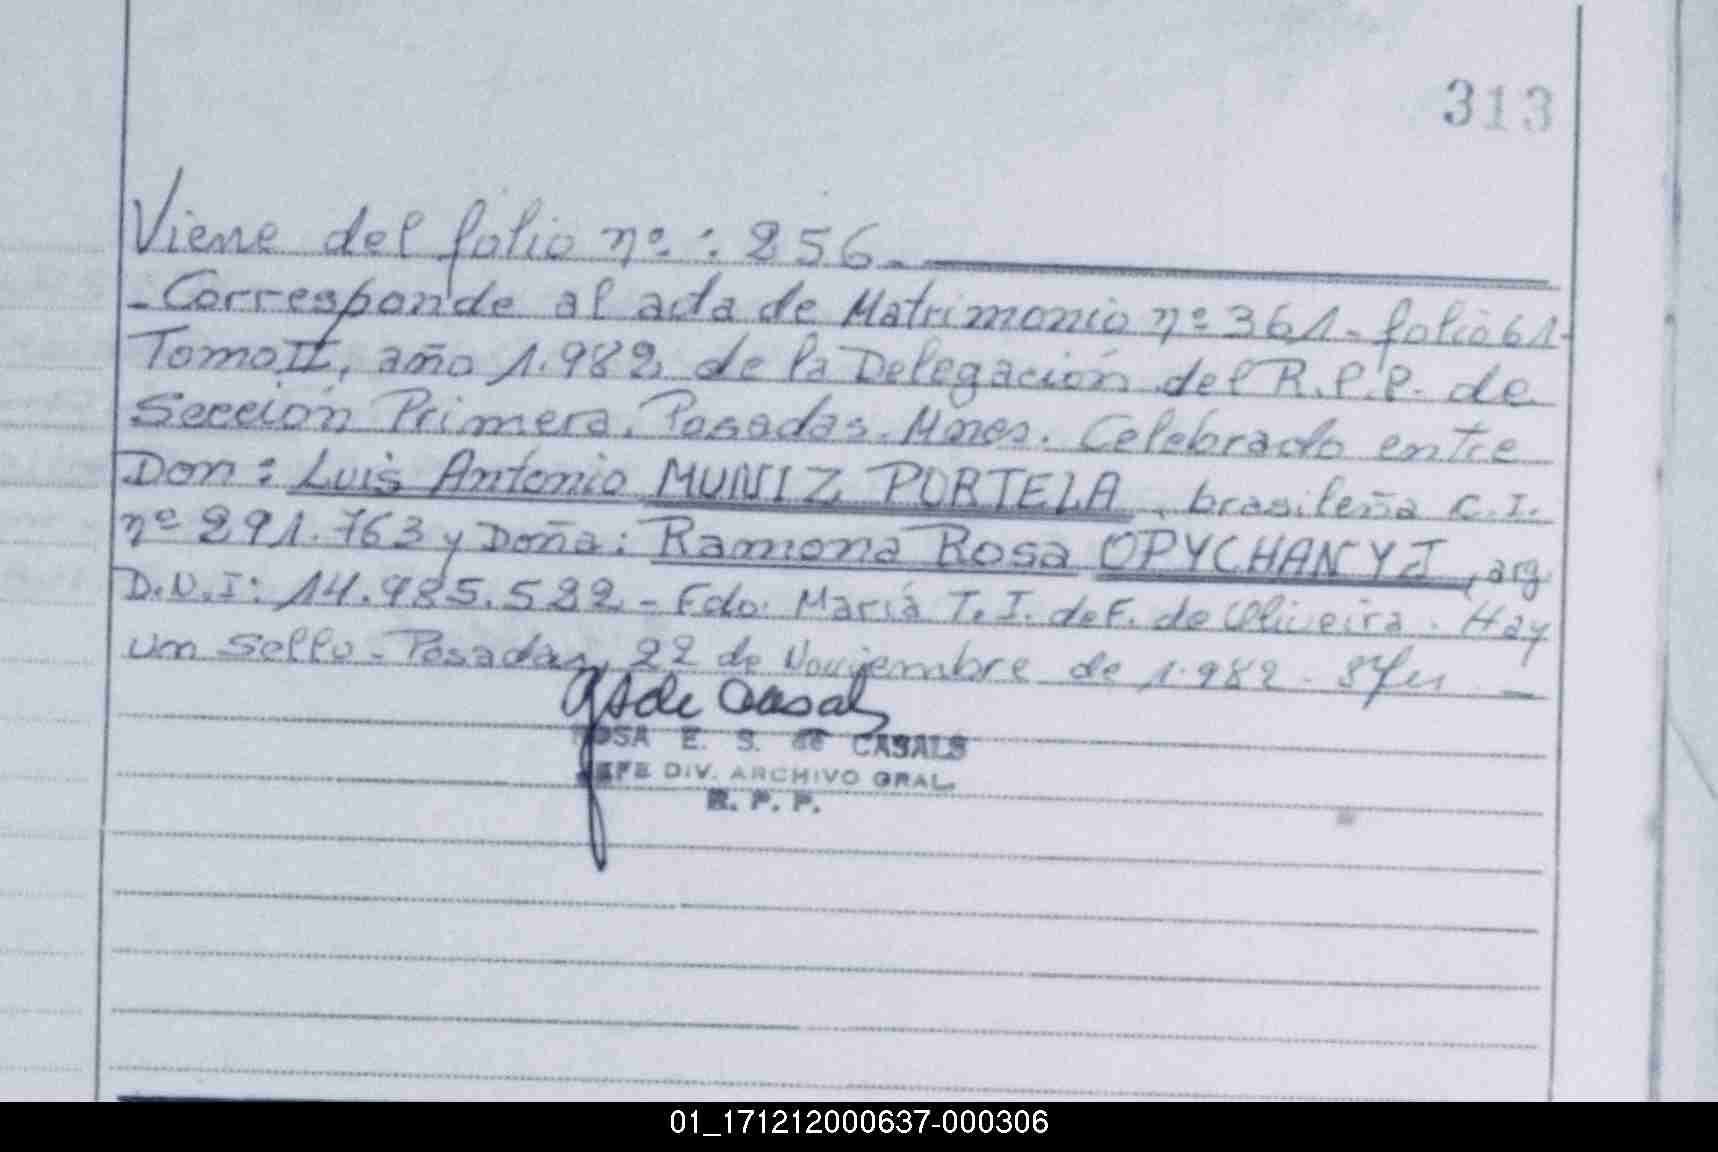 313
Viene del folio nº: 256.
- Corresponde al acta de Matrimonio nº 361 - folio 61 -
Tomo II, año 1.982, de la Delegación del R.P.P. de
Sección Primera. Posadas. Mnes. Celebrado entre
Don: Luis Antonio MUNIZ PORTELA, brasileña C.I.
nº 291.763 y Doña: Ramona Rosa OPYCHANYJ, arg
D.N.I: 14.985.522 - Fdo: María T. I. de F. de Oliveira. Hay
um Sello - Posadas, 22 de Noviembre de 1.982.
OSA E. S. de CASALS
EFE DIV. ARCHIVO GRAL.
R. P. P.
01_171212000637-000306